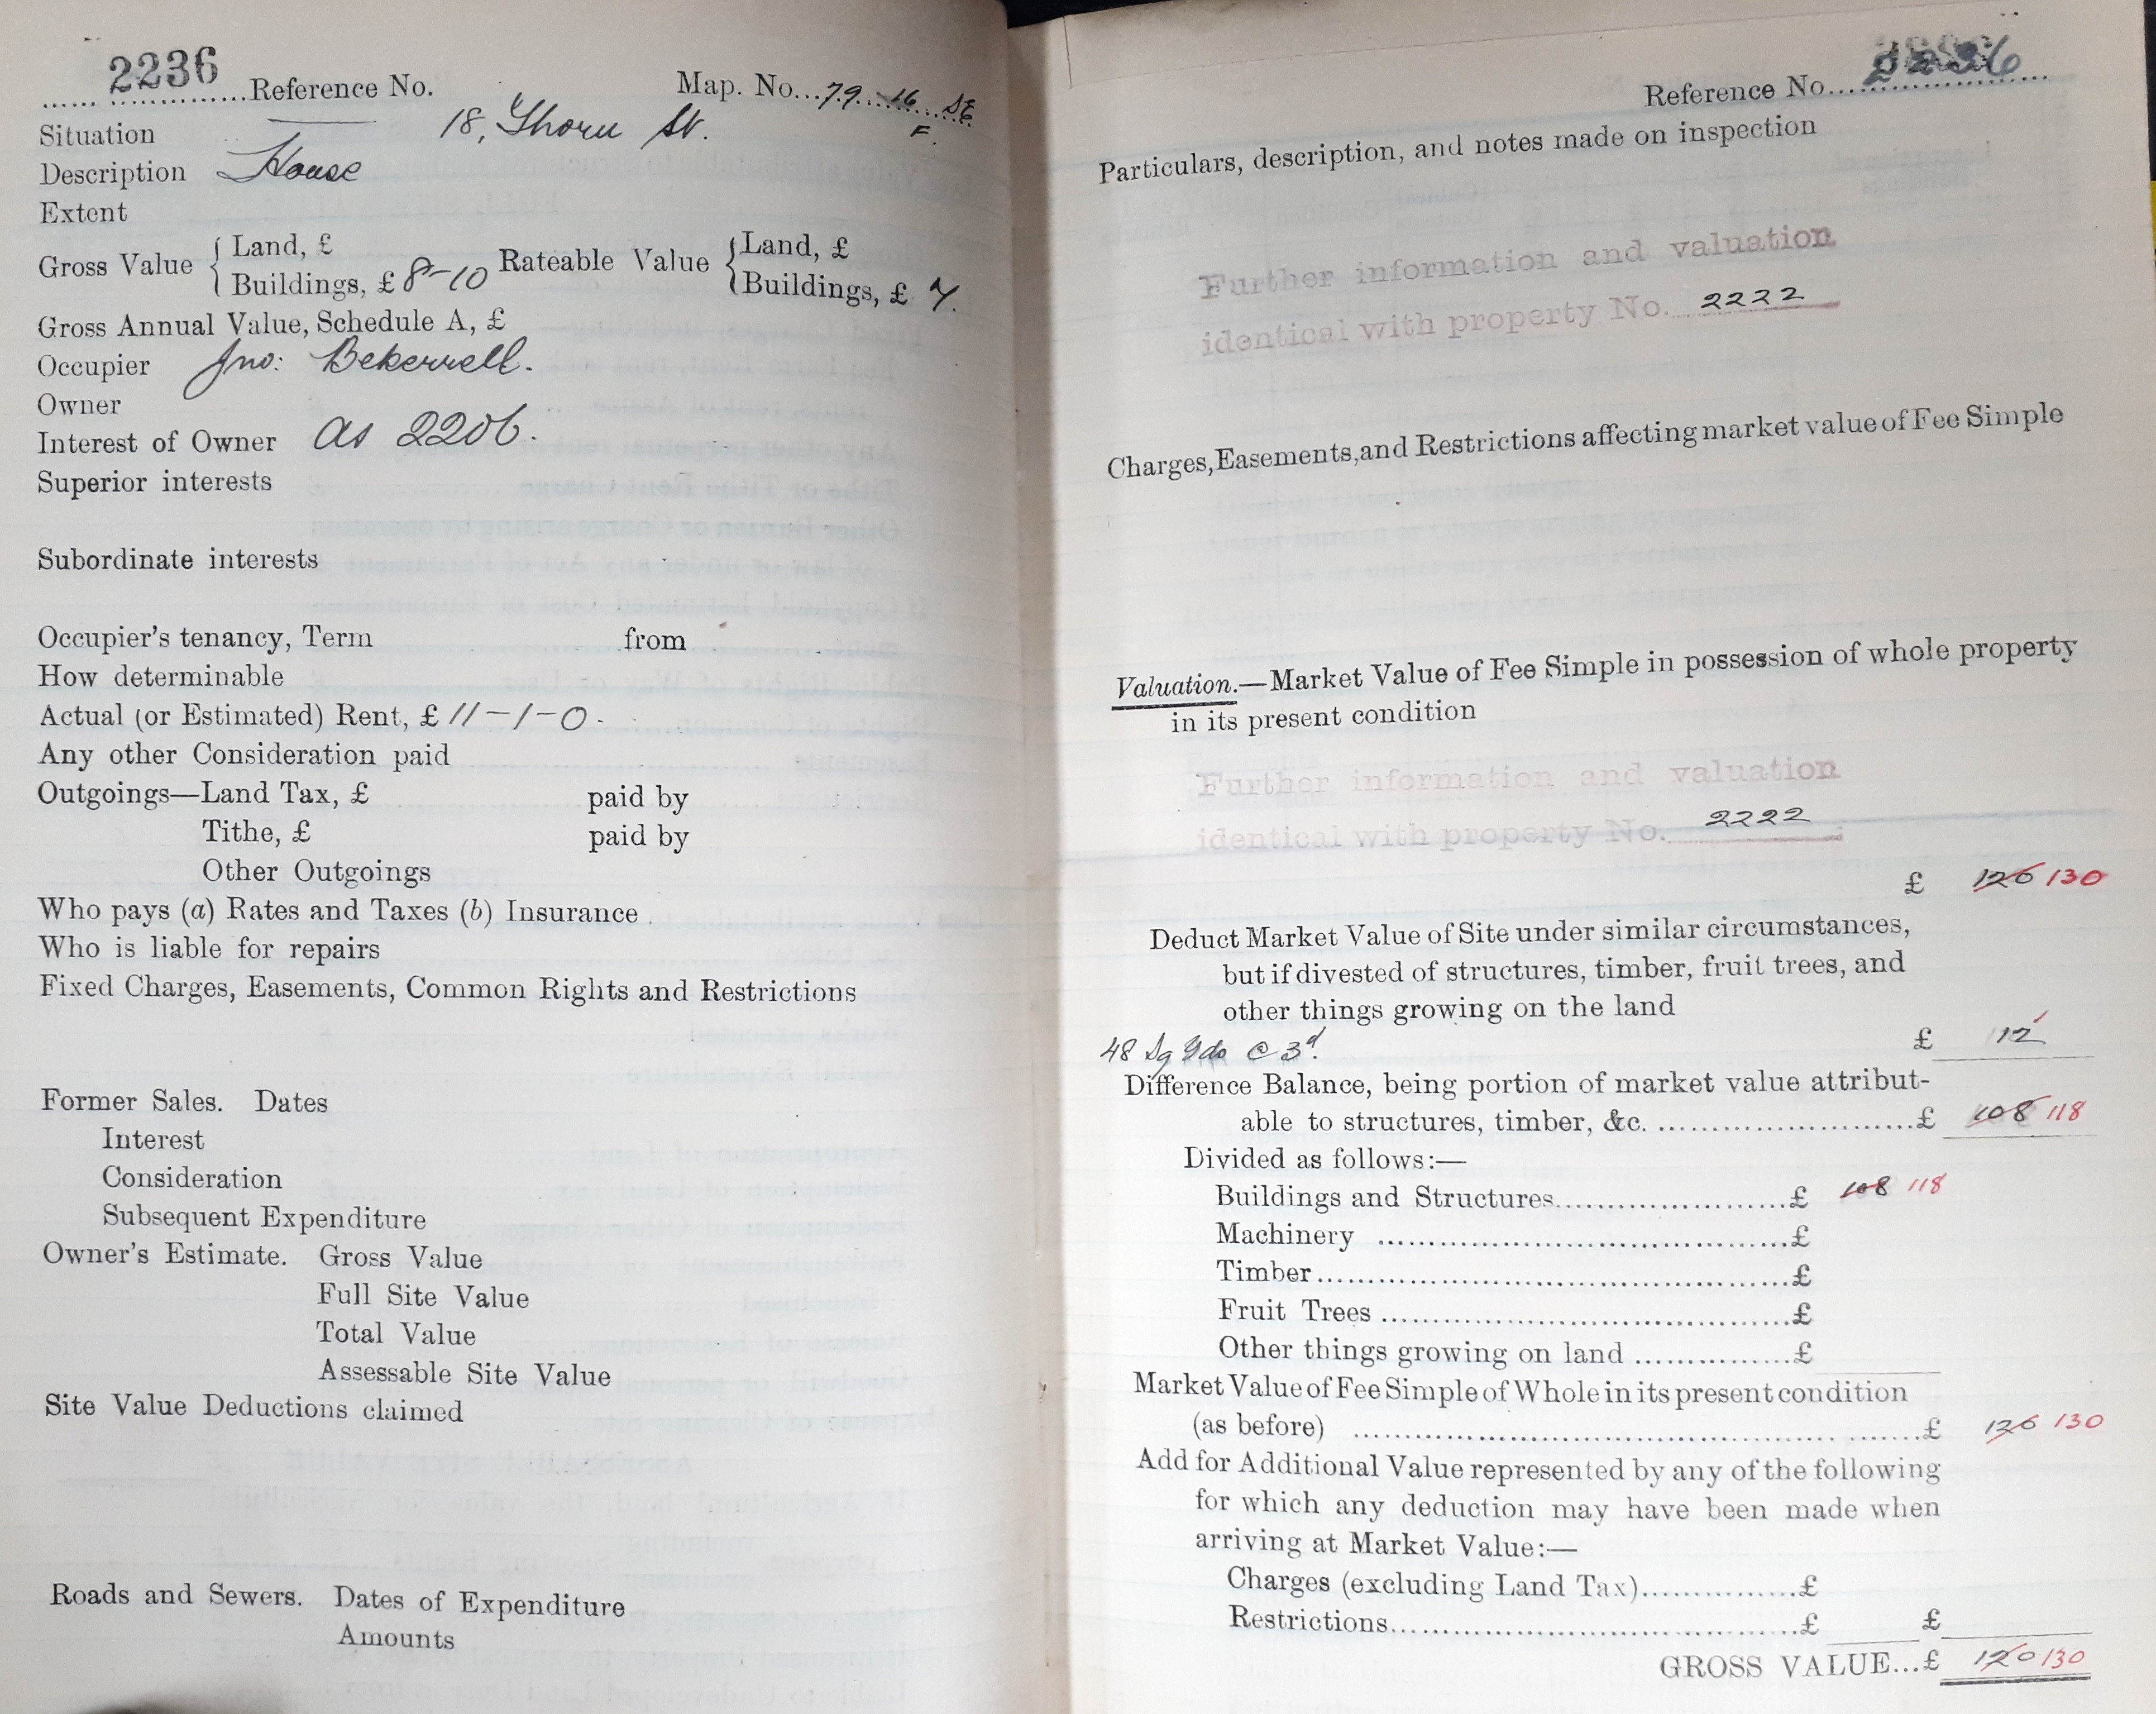 2236 Reference No. Map. No. 79 16 SE
F.
Situation 18, Thorn St.
Description House
Extent
Gross Value { Land, £ Rateable Value { Land, £
Buildings, £ 8-10 Buildings, £ 7.
Gross Annual Value, Schedule A, £
Occupier Jno: Bekerrell.
Owner
Interest of Owner as 2206.
Superior interests
Subordinate interests
Occupier's tenancy, Term from
How determinable
Actual (or Estimated) Rent, £ 11-1-0.
Any other Consideration paid
Outgoings—Land Tax, £ paid by
Tithe, £ paid by
Other Outgoings
Who pays (a) Rates and Taxes (b) Insurance
Who is liable for repairs
Fixed Charges, Easements, Common Rights and Restrictions
Former Sales. Dates
Interest
Consideration
Subsequent Expenditure
Owner's Estimate. Gross Value
Full Site Value
Total Value
Assessable Site Value
Site Value Deductions claimed
Roads and Sewers. Dates of Expenditure
Amounts
Reference No. 2236
Particulars, description, and notes made on inspection
Further information and valuation
identical with property No. 2222
Charges, Easements, and Restrictions affecting market value of Fee Simple
Valuation.—Market Value of Fee Simple in possession of whole property
in its present condition
Further information and valuation
identical with property No. 2222
£ 120 130
Deduct Market Value of Site under similar circumstances,
but if divested of structures, timber, fruit trees, and
other things growing on the land
48 Sq Yds @ 3d. £ 12
Difference Balance, being portion of market value attribut-
able to structures, timber, &c. £ 108 118
Divided as follows:—
Buildings and Structures £ 108 118
Machinery £
Timber £
Fruit Trees £
Other things growing on land £
Market Value of Fee Simple of Whole in its present condition
(as before) £ 120 130
Add for Additional Value represented by any of the following
for which any deduction may have been made when
arriving at Market Value:—
Charges (excluding Land Tax) £
Restrictions £ £
GROSS VALUE... £ 120 130